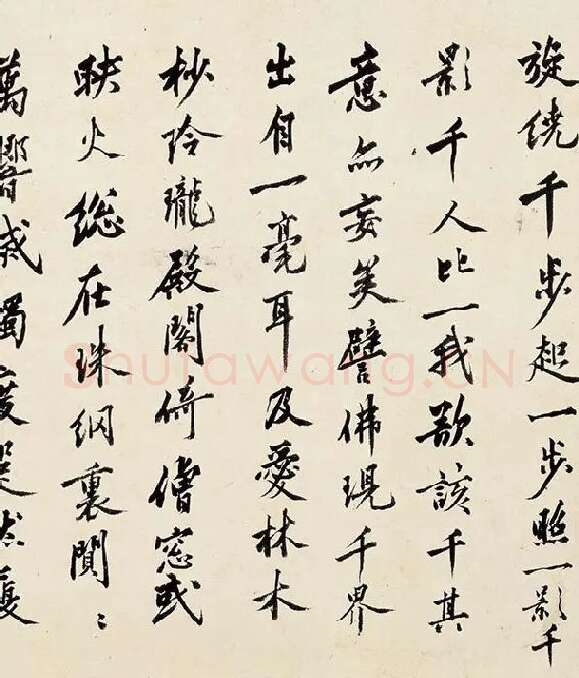 旋繞千步起一步照一影千
影千人比一我欲該千其
意亦妄矣譬佛現千界
出自一毫耳及愛林木
杪玲瓏殿閣倚僧窓或
映火総在珠網裏閴〻
萬響寂獨